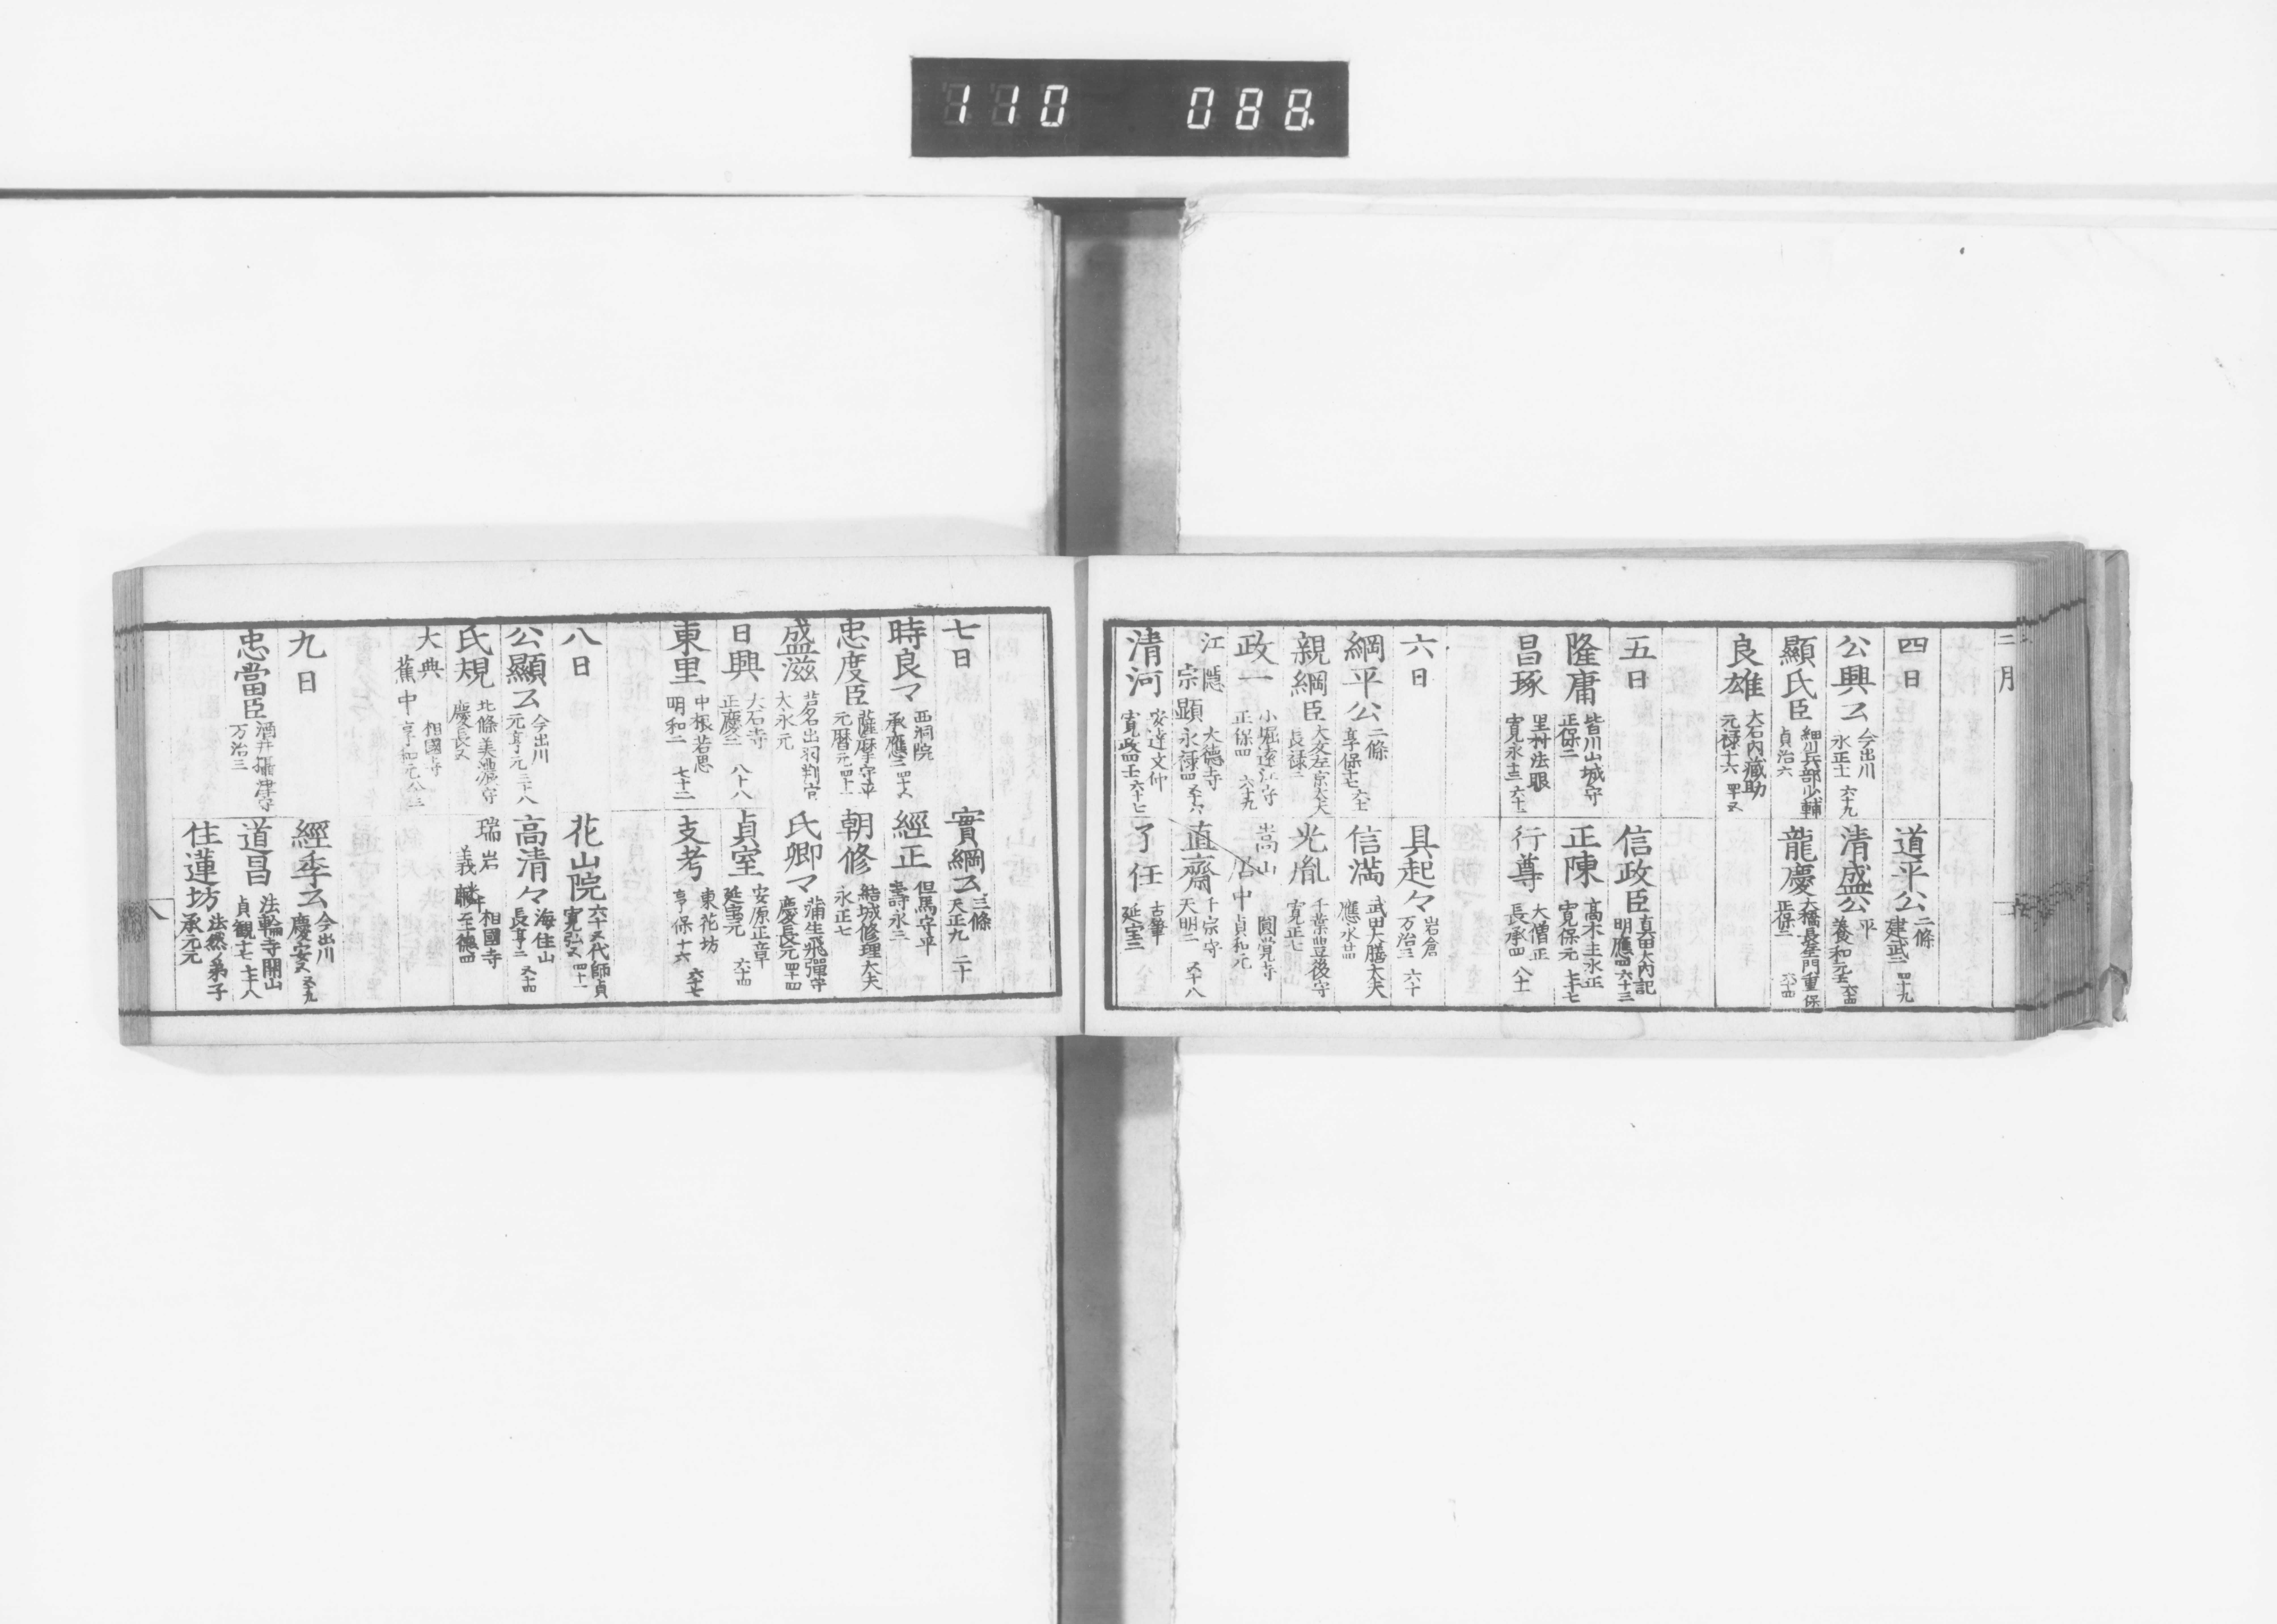 110 088.
二月
四日
道平公 二條 建武二 四十九
公興公 今出川 永正十一 六十九
清盛公 平 養和元 六十四
顯氏臣 細川兵部少輔 貞治六
龍慶 大橋長左衛門重保 正保二 六十四
良雄 大石内藏助 元禄十六 四十五
五日
信政臣 真田大内記 明應四 六十三
隆庸 皆川山城守 正保二
正陳 高木主水正 寛保元 七十七
昌琢 里村法眼 寛永十三 六十三
行尊 大僧正 長承四 八十一
六日
具起々 岩倉 万治三 六十
綱平公 二條 享保十七 六十一
信満 武田大膳大夫 應永廿四
親綱臣 大友左京大夫 長禄二
光胤 千葉豊後守 寛正七
政一 小堀遠江守 正保四 六十九
嵩山 居中 圓覚寺 貞和元
江隱 宗顯 大徳寺 永禄四 五十六
直齋 千宗守 天明二 五十八
清河 安達文仲 寛政四壬 六十七
了任 古筆 延宝二
七日
實綱公 三條 天正九 二十
時良マ 西洞院 承應二 四十五
經正 但馬守平 壽永三
忠度臣 薩摩守平 元暦元 四十一
朝修 結城修理大夫 永正七
盛滋 苔名出羽判官 大永元
氏郷マ 蒲生飛彈守 慶長元 四十四
日興 大石寺 正慶二 八十八
貞室 安原正章 延宝元 六十四
東里 中根若思 明和二 七十二
支考 東花坊 享保十六 六十七
八日
花山院 六十五代師貞 寛弘五 四十一
公顯公 今出川 元亨元 三十八
高清々 海住山 長享二 五十四
氏規 北條美濃守 慶長五
瑞岩 義麟 相國寺 至徳四
大典 蕉中 相國寺 享和元 八十三
九日
經季公 今出川 慶安五 五十九
忠當臣 酒井攝津守 万治三
道昌 法輪寺開山 貞観十七 七十八
住蓮坊 法然ノ弟子 承元元
八